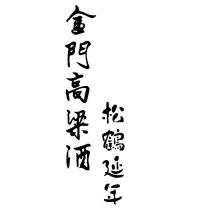 金門高粱酒
松鶴延年